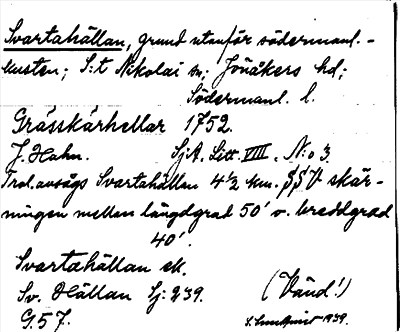 Svartahällan, grund utanför södermanl.-
kusten; S:t Nikolai sn; Jönåkers hd;
Södermanl. l.
Grässkärhellar 1752.
J. Hahn. SjA. Litt. VIII. N:o 3.
Trol. avsågs Svartahällan 4 1/2 km. SSV skär-
ningen mellan längdgrad 50' o. breddgrad
40'.
Svartahällan sk.
Sv. Hällan Sj: 239. (Vänd!)
G. 57. 1939.